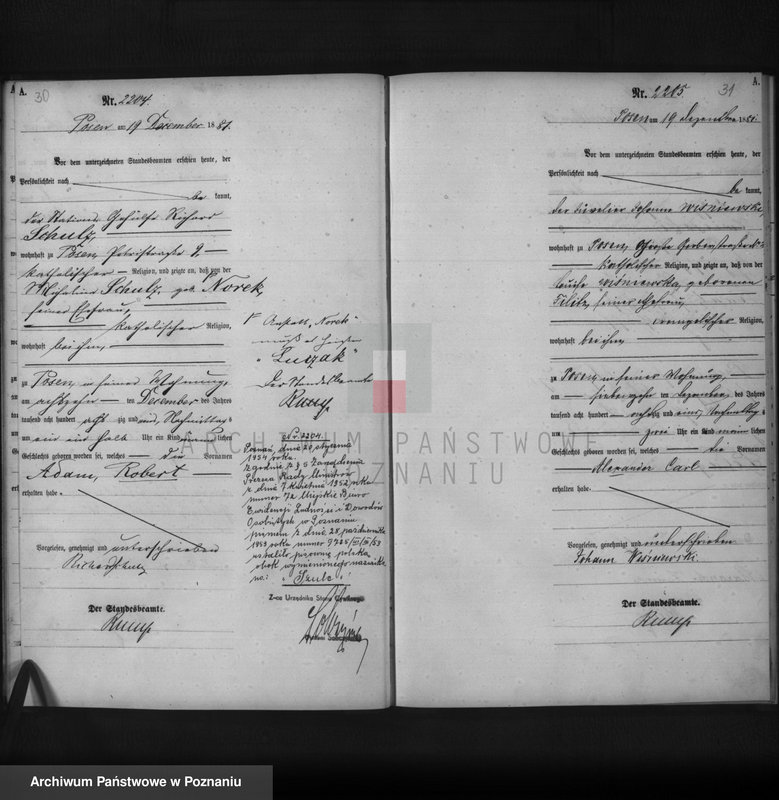 A.
30
Nr. 2204.
Posen am 19 December 1881.
Vor dem unterzeichneten Standesbeamten erschien heute, der
Persönlichkeit nach
be kannt,
der Stations Gehülfe Richard
Schulz,
wohnhaft zu Posen Petristraße 2
katholischer Religion, und zeigte an, daß von der
Schulz geb. Norek,
seiner Ehefrau,
katholischer Religion,
wohnhaft bei ihm,
zu Posen in seiner Wohnung,
am achtzehn ten December des Jahres
tausend acht hundert acht zig und eins, Nachmittags
um ein ein halb Uhr ein Kind männlichen
Geschlechts geboren worden sei, welches die Vornamen
Adam, Robert
erhalten habe.
Vorgelesen, genehmigt und unterschrieben
Richard Schulz
Der Standesbeamte.
Anstatt „Norek“
muß es heißen
„Luczak“
Der Standesbeamte
Nr. 2204.
Poznań, dnia 20 stycznia
1954 roku.
Zgodnie z § 5 Zarządzenia
Prezesa Rady Ministrów
z dnia 7 kwietnia 1952 roku
numer 72 Miejskie Biuro
Ewidencji Ludności i Dowodów
Osobistych w Poznaniu
pismem z dnia 28 października
1953 roku numer
ustaliło pisownię polską
obok wymienionego nazwiska
na: „Szulc“
Z-ca Urzędnika Stanu Cywilnego
A.
31
Nr. 2205.
Posen am 19 Dezember 1881.
Vor dem unterzeichneten Standesbeamten erschien heute, der
Persönlichkeit nach
be kannt,
der Juwelier Johann Wiśniewski,
wohnhaft zu Posen, Große Gerberstraße
katholischer Religion, und zeigte an, daß von der
Louise Wiśniewska, geborenen
seiner Ehefrau
evangelischer Religion,
wohnhaft bei ihm
zu Posen in seiner Wohnung,
am siebenzehn ten Dezember des Jahres
tausend acht hundert achtzig und eins, Nachmittags
um zwei Uhr ein Kind männlichen
Geschlechts geboren worden sei, welches die Vornamen
Alexander Carl
erhalten habe.
Vorgelesen, genehmigt und unterschrieben
Johann Wiśniewski.
Der Standesbeamte.
ARCHIWUM PAŃSTWOWE
W POZNANIU
Archiwum Państwowe w Poznaniu